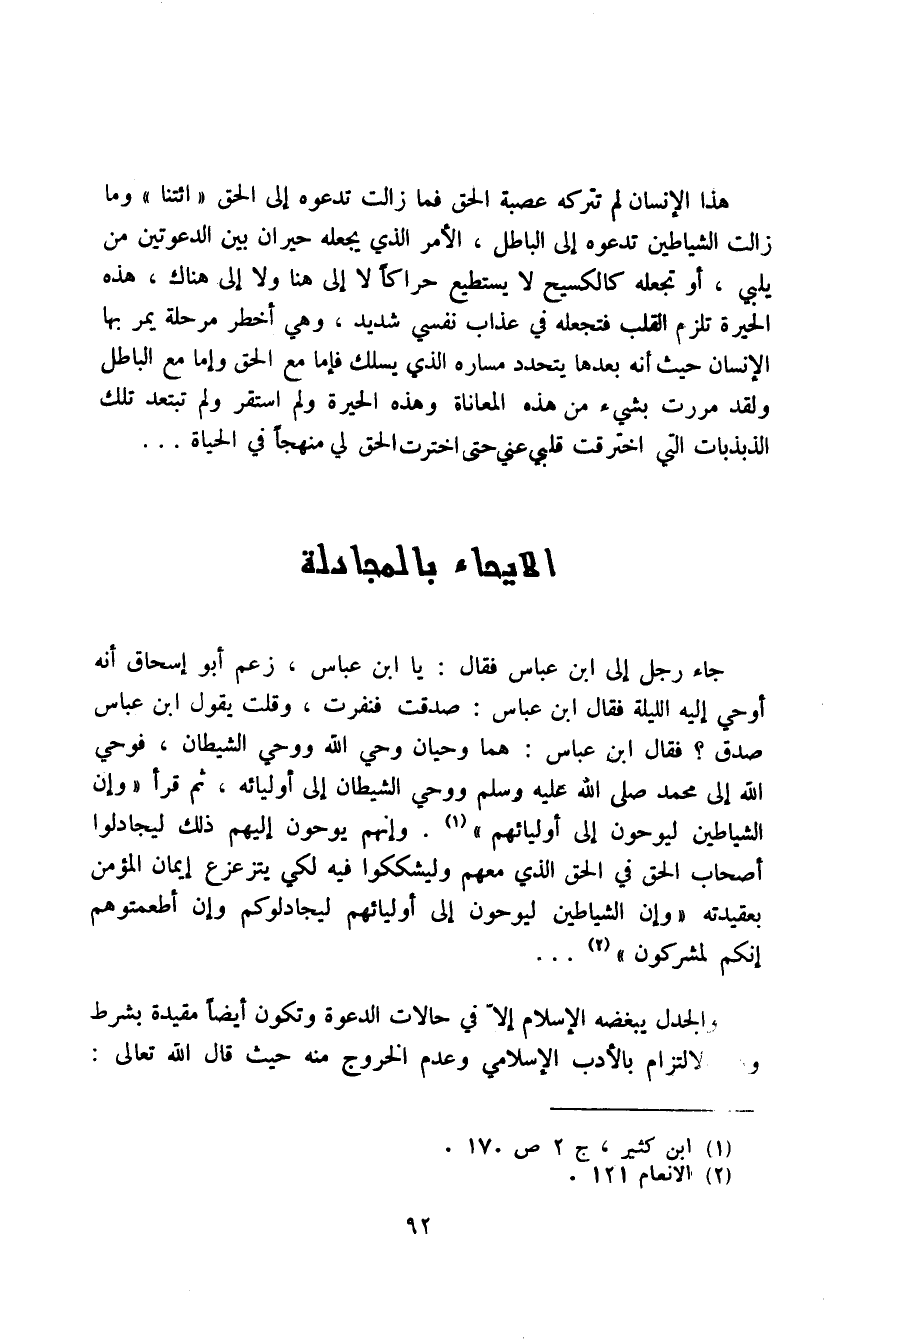 هذا الإنسان لم تتركه عصبة الحق فما زالت تدعوه إلى الحق « ائتنا » وما
زالت الشياطين تدعوه إلى الباطل ، الأمر الذي يجعله حيران بين الدعوتين من
يلبي ، أو تجعله كالكسيح لا يستطيع حراكاً لا إلى هنا ولا إلى هناك ، هذه
الحيرة تلزم القلب فتجعله في عذاب نفسي شديد ، وهي أخطر مرحلة يمر بها
الإنسان حيث أنه بعدها يتحدد مساره الذي يسلك فإما مع الحق وإما مع الباطل
ولقد مررت بشيء من هذه المعاناة وهذه الحيرة ولم استقر ولم تبتعد تلك
الذبذبات التي اخترقت قلبي عني حتى اخترت الحق لي منهجاً في الحياة . . .
الايحاء بالمجادلة
جاء رجل إلى ابن عباس فقال : يا ابن عباس ، زعم أبو إسحاق أنه
أوحي إليه الليلة فقال ابن عباس : صدقت فنفرت ، وقلت يقول ابن عباس
صدق ؟ فقال ابن عباس : هما وحيان وحي الله ووحي الشيطان ، فوحي
الله إلى محمد صلى الله عليه وسلم ووحي الشيطان إلى أوليائه ، ثم قرأ « وإن
الشياطين ليوحون إلى أوليائهم »(١) . وإنهم يوحون إليهم ذلك ليجادلوا
أصحاب الحق في الحق الذي معهم وليشككوا فيه لكي يتزعزع إيمان المؤمن
بعقيدته « وإن الشياطين ليوحون إلى أوليائهم ليجادلوكم وإن أطعمتوهم
إنكم لمشركون »(٢) . . .
والجدل يبغضه الإسلام إلاّ في حالات الدعوة وتكون أيضاً مقيدة بشرط
و لالتزام بالأدب الإسلامي وعدم الخروج منه حيث قال الله تعالى :
(١) ابن كثير ، ج ٢ ص ١٧٠ .
(٢) الانعام ١٢١ .
٩٢